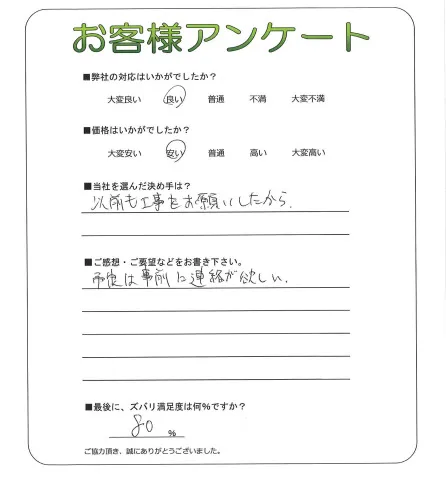 お客様アンケート
■弊社の対応はいかがでしたか？
大変良い 良い 普通 不満 大変不満
■価格はいかがでしたか？
大変安い 安い 普通 高い 大変高い
■当社を選んだ決め手は？
以前も工事をお願いしたから.
■ご感想・ご要望などをお書き下さい。
は事前に連絡が欲しい.
■最後に、ズバリ満足度は何%ですか？
80 %
ご協力頂き、誠にありがとうございました。